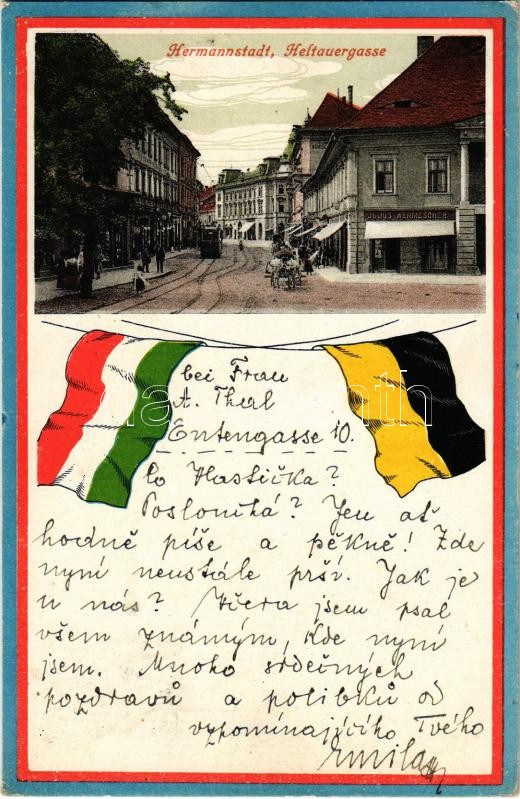 Hermannstadt, Heltauergasse
JULIUS WERMESCHER
bei Frau
A. Thal
Entengasse 10.
Co Vlastička?
Poslouchá? Jen ať
hodně píše a pěkně! Zde
nyní neustále prší. Jak je
u nás? Včera jsem psal
všem známým, kde nyní
jsem. Mnoho srdečných
pozdravů a polibků od
vzpomínajícího Tvého